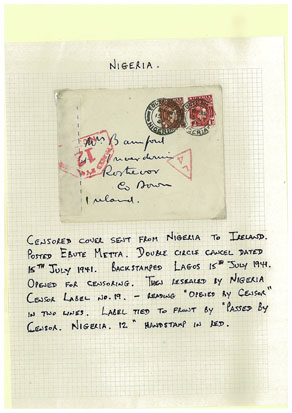 NIGERIA.
Mrs Bamford
Rostrevor
Co Down
Ireland.
12
CENSORED COVER SENT FROM NIGERIA TO IRELAND.
POSTED EBUTE METTA. DOUBLE CIRCLE CANCEL DATED
15TH JULY 1941. BACKSTAMPED LAGOS 15TH JULY 1941.
OPENED FOR CENSORING. THEN RESEALED BY NIGERIA
CENSOR LABEL NO. 19. - READING "OPENED BY CENSOR"
IN TWO LINES. LABEL TIED TO FRONT BY "PASSED BY
CENSOR. NIGERIA. 12" HANDSTAMP IN RED.